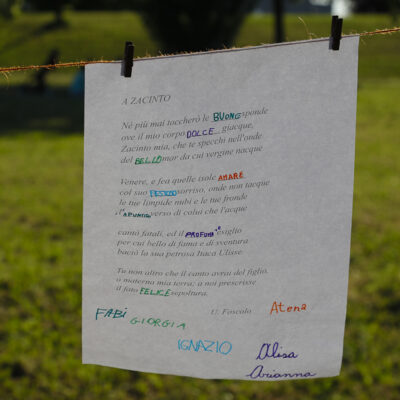 A ZACINTO
Nè più mai toccherò le BUONE sponde
ove il mio corpo DOLCE giacque,
Zacinto mia, che te specchi nell'onde
del BELLO mar da cui vergine nacque
Venere, e fea quelle isole AMARE
col suo sorriso, onde non tacque
le tue limpide nubi e le tue fronde
verso di colui che l'acque
cantò fatali, ed il PROFUMATO esiglio
per cui bello di fama e di sventura
baciò la sua petrosa Itaca Ulisse.
Tu non altro che il canto avrai del figlio,
o materna mia terra; a noi prescrisse
il fato FELICE sepoltura.
U. Foscolo Atena
FABI
GIORGIA
IGNAZIO
Alisa
Arianna